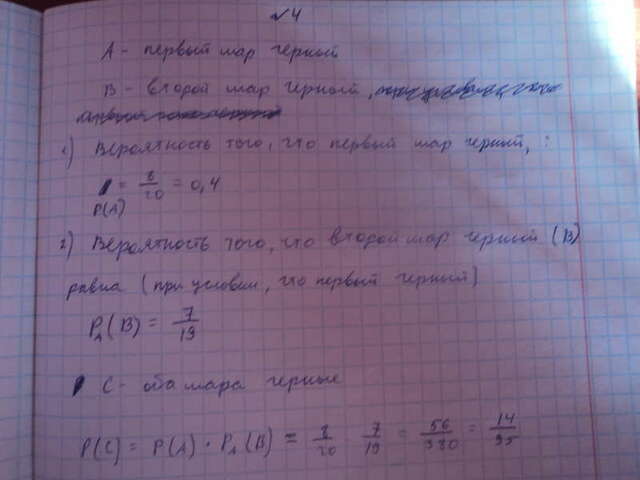 №4
А - первый шар черный
В - второй шар черный,
1) Вероятность того, что первый шар черный, :
P(A) = 8/20 = 0,4
2) Вероятность того, что второй шар черный (В)
равна (при условии, что первый черный)
P_A(B) = 7/19
С - оба шара черные
P(C) = P(A) · P_A(B) = 8/20 7/19 = 56/380 = 14/95